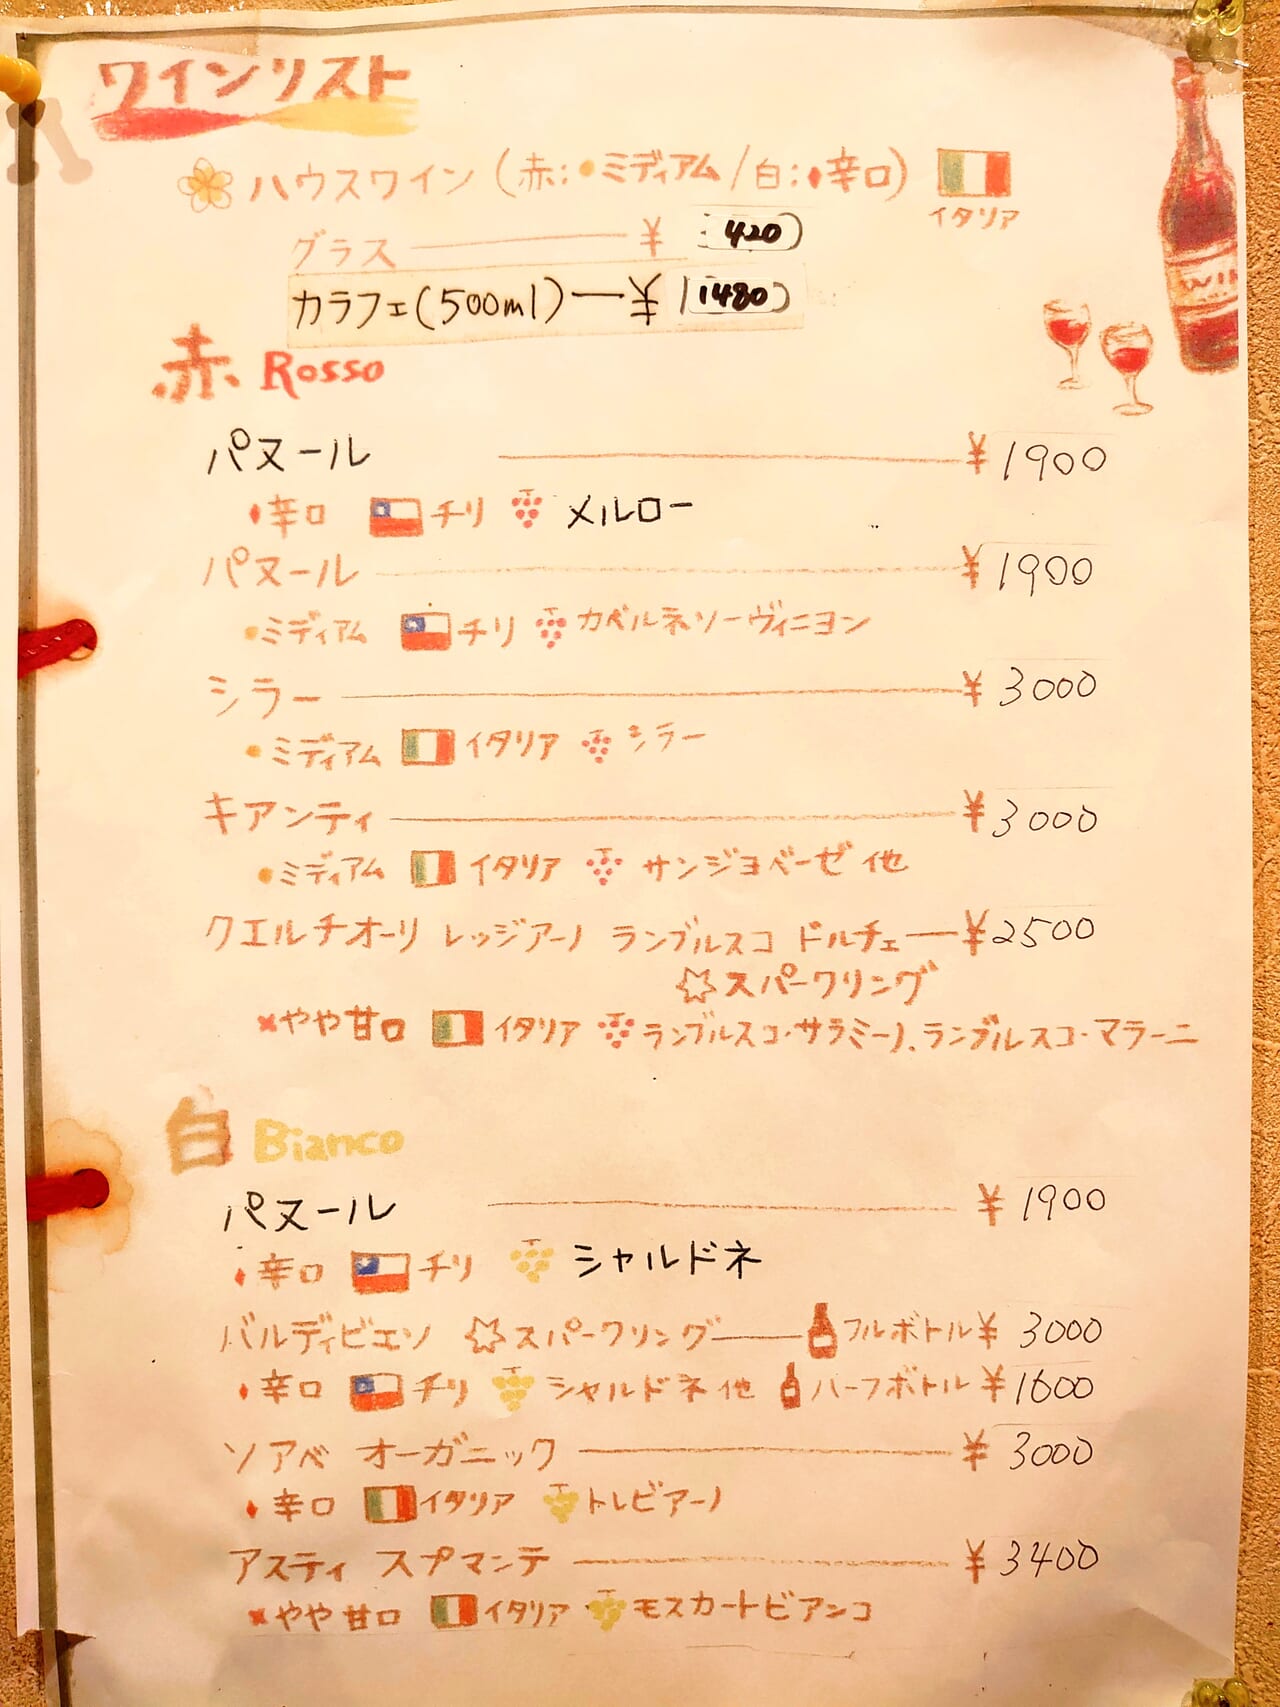 ワインリスト
ハウスワイン (赤:ミディアム/白:辛口)
イタリア
グラス ¥ 420
カラフェ(500ml) ¥ 1480
赤 Rosso
パヌール ¥1900
辛口 チリ メルロー
パヌール ¥1900
ミディアム チリ カベルネソーヴィニヨン
シラー ¥3000
ミディアム イタリア シラー
キアンティ ¥3000
ミディアム イタリア サンジョベーゼ 他
クエルチオーリ レッジアーノ ランブルスコ ドルチェ ¥2500
スパークリング
やや甘口 イタリア ランブルスコ・サラミーノ、ランブルスコ・マラーニ
白 Bianco
パヌール ¥1900
辛口 チリ シャルドネ
バルディビエソ スパークリング フルボトル¥ 3000
辛口 チリ シャルドネ 他 ハーフボトル ¥1600
ソアベ オーガニック ¥3000
辛口 イタリア トレビアーノ
アスティ スプマンテ ¥3400
やや甘口 イタリア モスカートビアンコ
WIN